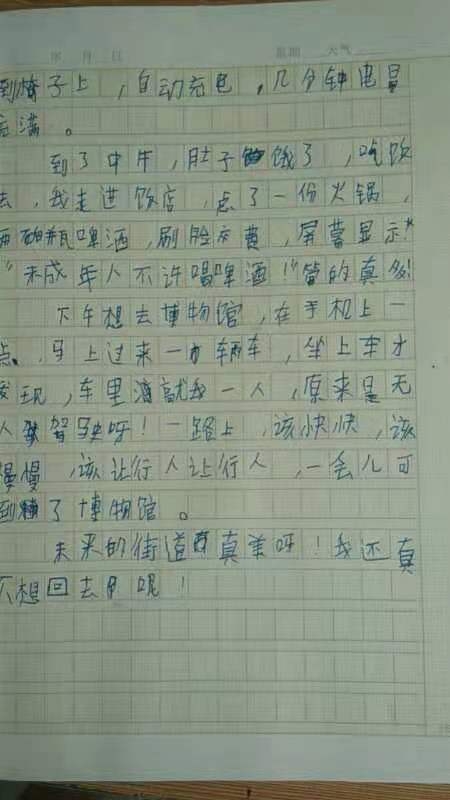 年 月 日 星期 天气
到椅子上，自动充电，几分钟电量
充满。
到了中午，肚子饿了，吃饭
去，我走进饭店，点了一份火锅，
两瓶啤酒，刷脸付费，屏幕显示
"未成年人不许喝啤酒！"管的真多！
下午想去博物馆，在手机上一
点，马上过来一辆车，坐上车才
发现，车里就我一人，原来是无
人驾驶呀！一路上，该快快，该
慢慢，该让行人让行人，一会儿可
到了博物馆。
未来的街道真美呀！我还真
不想回去呢！